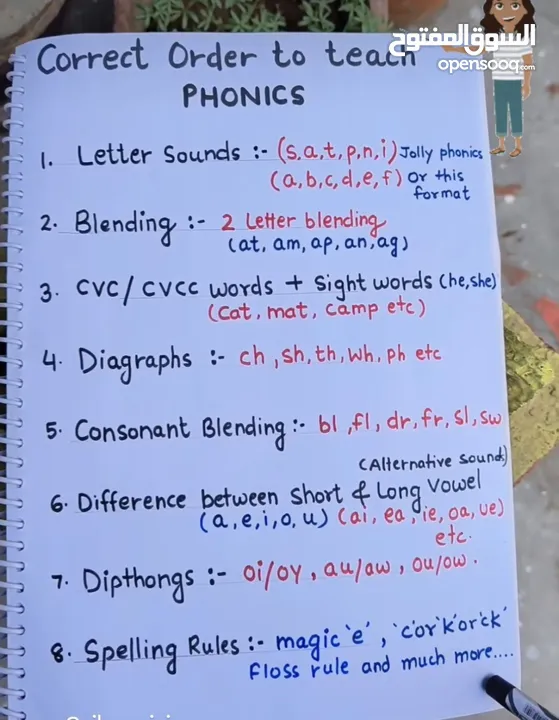 السوق المفتوح
opensooq.com
Correct Order to teach
PHONICS
1. Letter Sounds :- (s,a,t,p,n,i) Jolly phonics
(a,b,c,d,e,f) or this
format
2. Blending :- 2 Letter blending
(at, am, ap, an, ag)
3. CVC/CVCC words + Sight words (he, she)
(Cat, mat, camp etc)
4. Diagraphs :- ch, sh, th, wh, ph etc
5. Consonant Blending :- bl, fl, dr, fr, sl, sw
(Alternative sounds)
6. Difference between Short & Long Vowel
(a, e, i, o, u) (ai, ea, ie, oa, ue)
etc.
7. Dipthongs :- oi/oy, au/aw, ou/ow.
8. Spelling Rules :- magic 'e', 'c'or'k'or'ck'
Floss rule and much more....